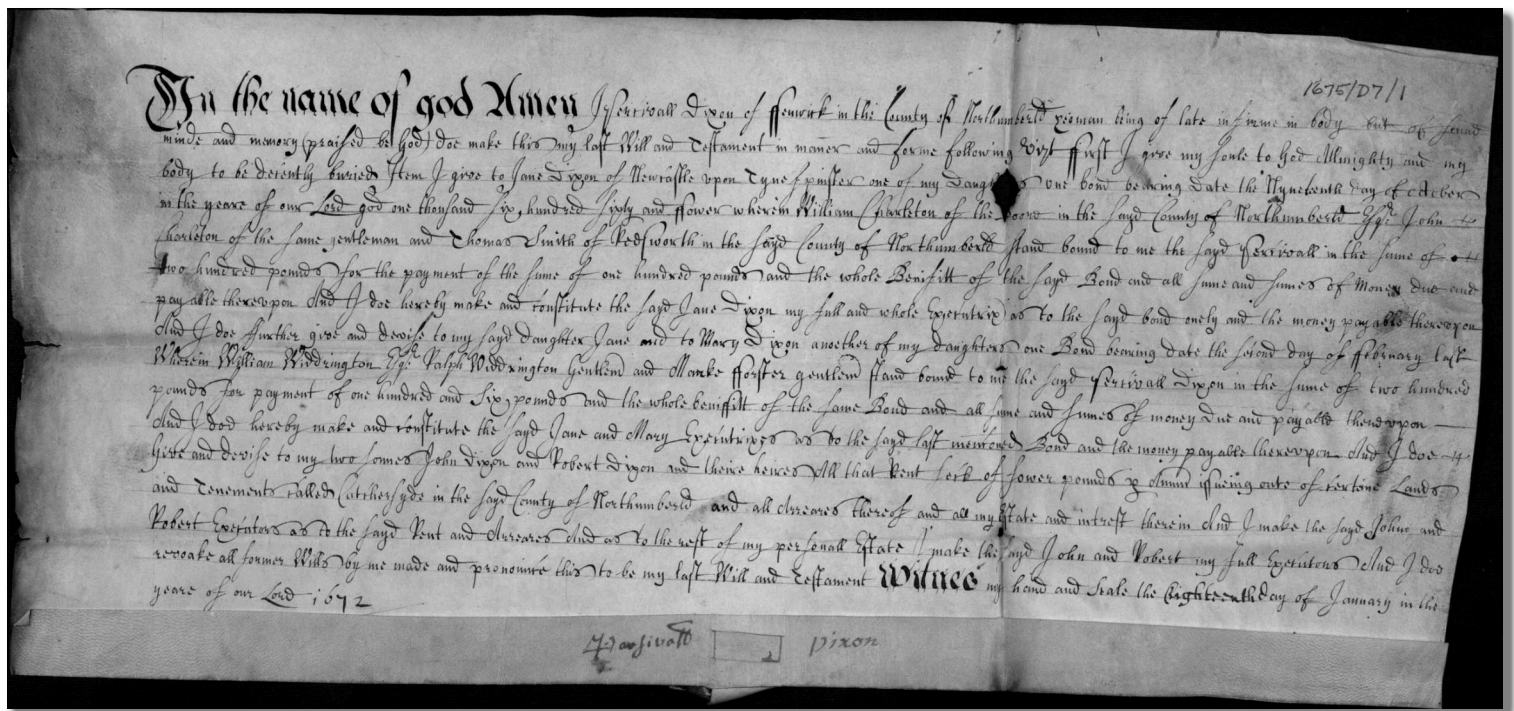 1675/D7/1
In the name of god Amen I Percivall Dixon of ffenwick in the County of Northumberld yeoman being of late infirme in body but of sound
minde and memory (praised be God) doe make this my last Will and Testament in maner and forme following Vizt ffirst I give my soule to God Almighty and my
body to be decently buried Item I give to Jane Dixon of Newcastle vpon Tyne spinster one of my Daughters one bond bearing date the Nyneteenth day of october
in the yeare of our Lord god one thousand six hundred sixty and ffower wherein William Charleton of the in the sayd County of Northumberld Esqr John
Charleton of the same gentleman and Thomas Smith of Kedsworth in the sayd County of Northumberld stand bound to me the sayd Percivall in the sume of
two hundred pounds for the payment of the sume of one hundred pounds and the whole Benifitt of the sayd Bond and all sume and sumes of Money due and
payable therevpon And I doe hereby make and constitute the sayd Jane Dixon my full and whole Executrix as to the sayd bond onely and the money payable therevpon
And I doe ffurther give and devise to my sayd daughter Jane and to Mary Dixon another of my daughters one Bond bearing date the second day of ffebruary last
Wherein William Widdrington Esqr Ralph Widdrington Gentlem and Marke fforster gentlem stand bound to me the sayd Percivall Dixon in the sume of two hundred
pounds for payment of one hundred and six pounds and the whole beniffitt of the same Bond and all sume and sumes of money due and payable therevpon
And I doe hereby make and constitute the sayd Jane and Mary Executrixes as to the sayd last mentioned Bond and the money payable therevpon And I doe
Give and devise to my two sonnes John Dixon and Robert Dixon and theire heires All that Rent seck of fower pounds p Annu issueing oute of certaine Lands
and Tenements called Catchersyde in the sayd County of Northumberld and all Arreares thereof and all my Estate and intrest therein And I make the sayd John and
Robert Executors as to the sayd Rent and Arreares And as to the rest of my personall Estate I make the sayd John and Robert my full Executors And I doe
revoake all former Wills by me made and pronounce this to be my last Will and Testament Witnes my hand and Seale the Eighteenth day of January in the
yeare of our Lord 1672
Percivall Dixon